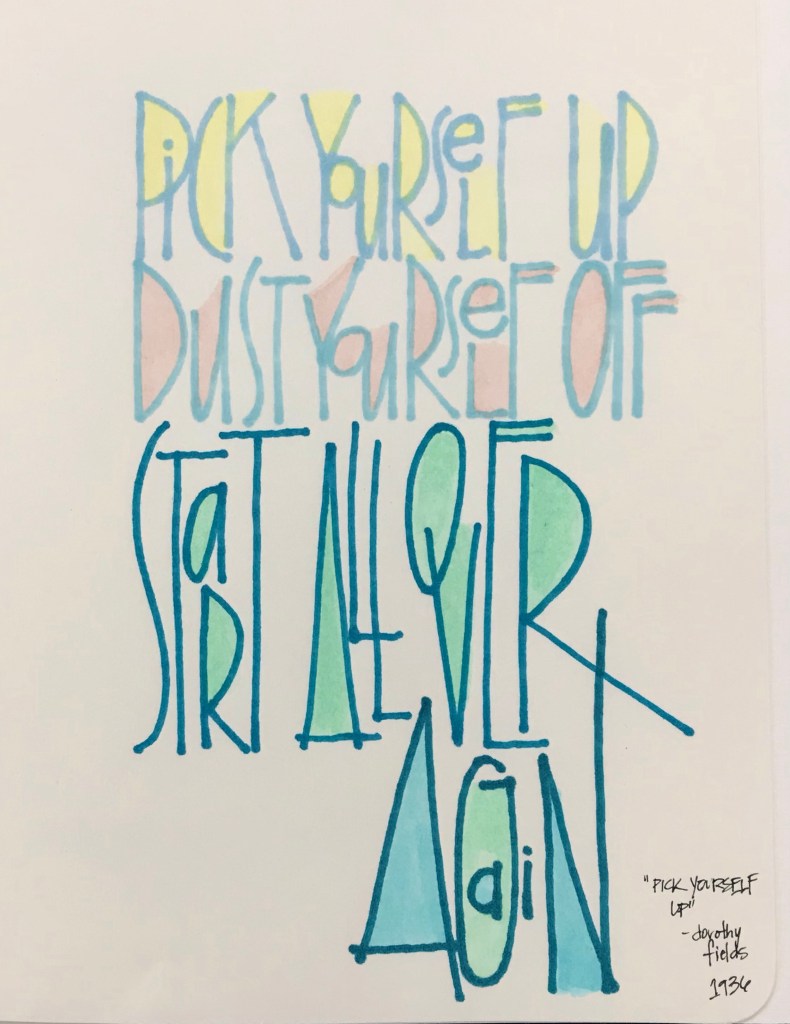 PiCK YOURSeLF UP
DUST YOURSeLF OFF
STaRT ALL OVER
AGaiN
"PICK YOURSELF
UP"
-dorothy
fields
1936